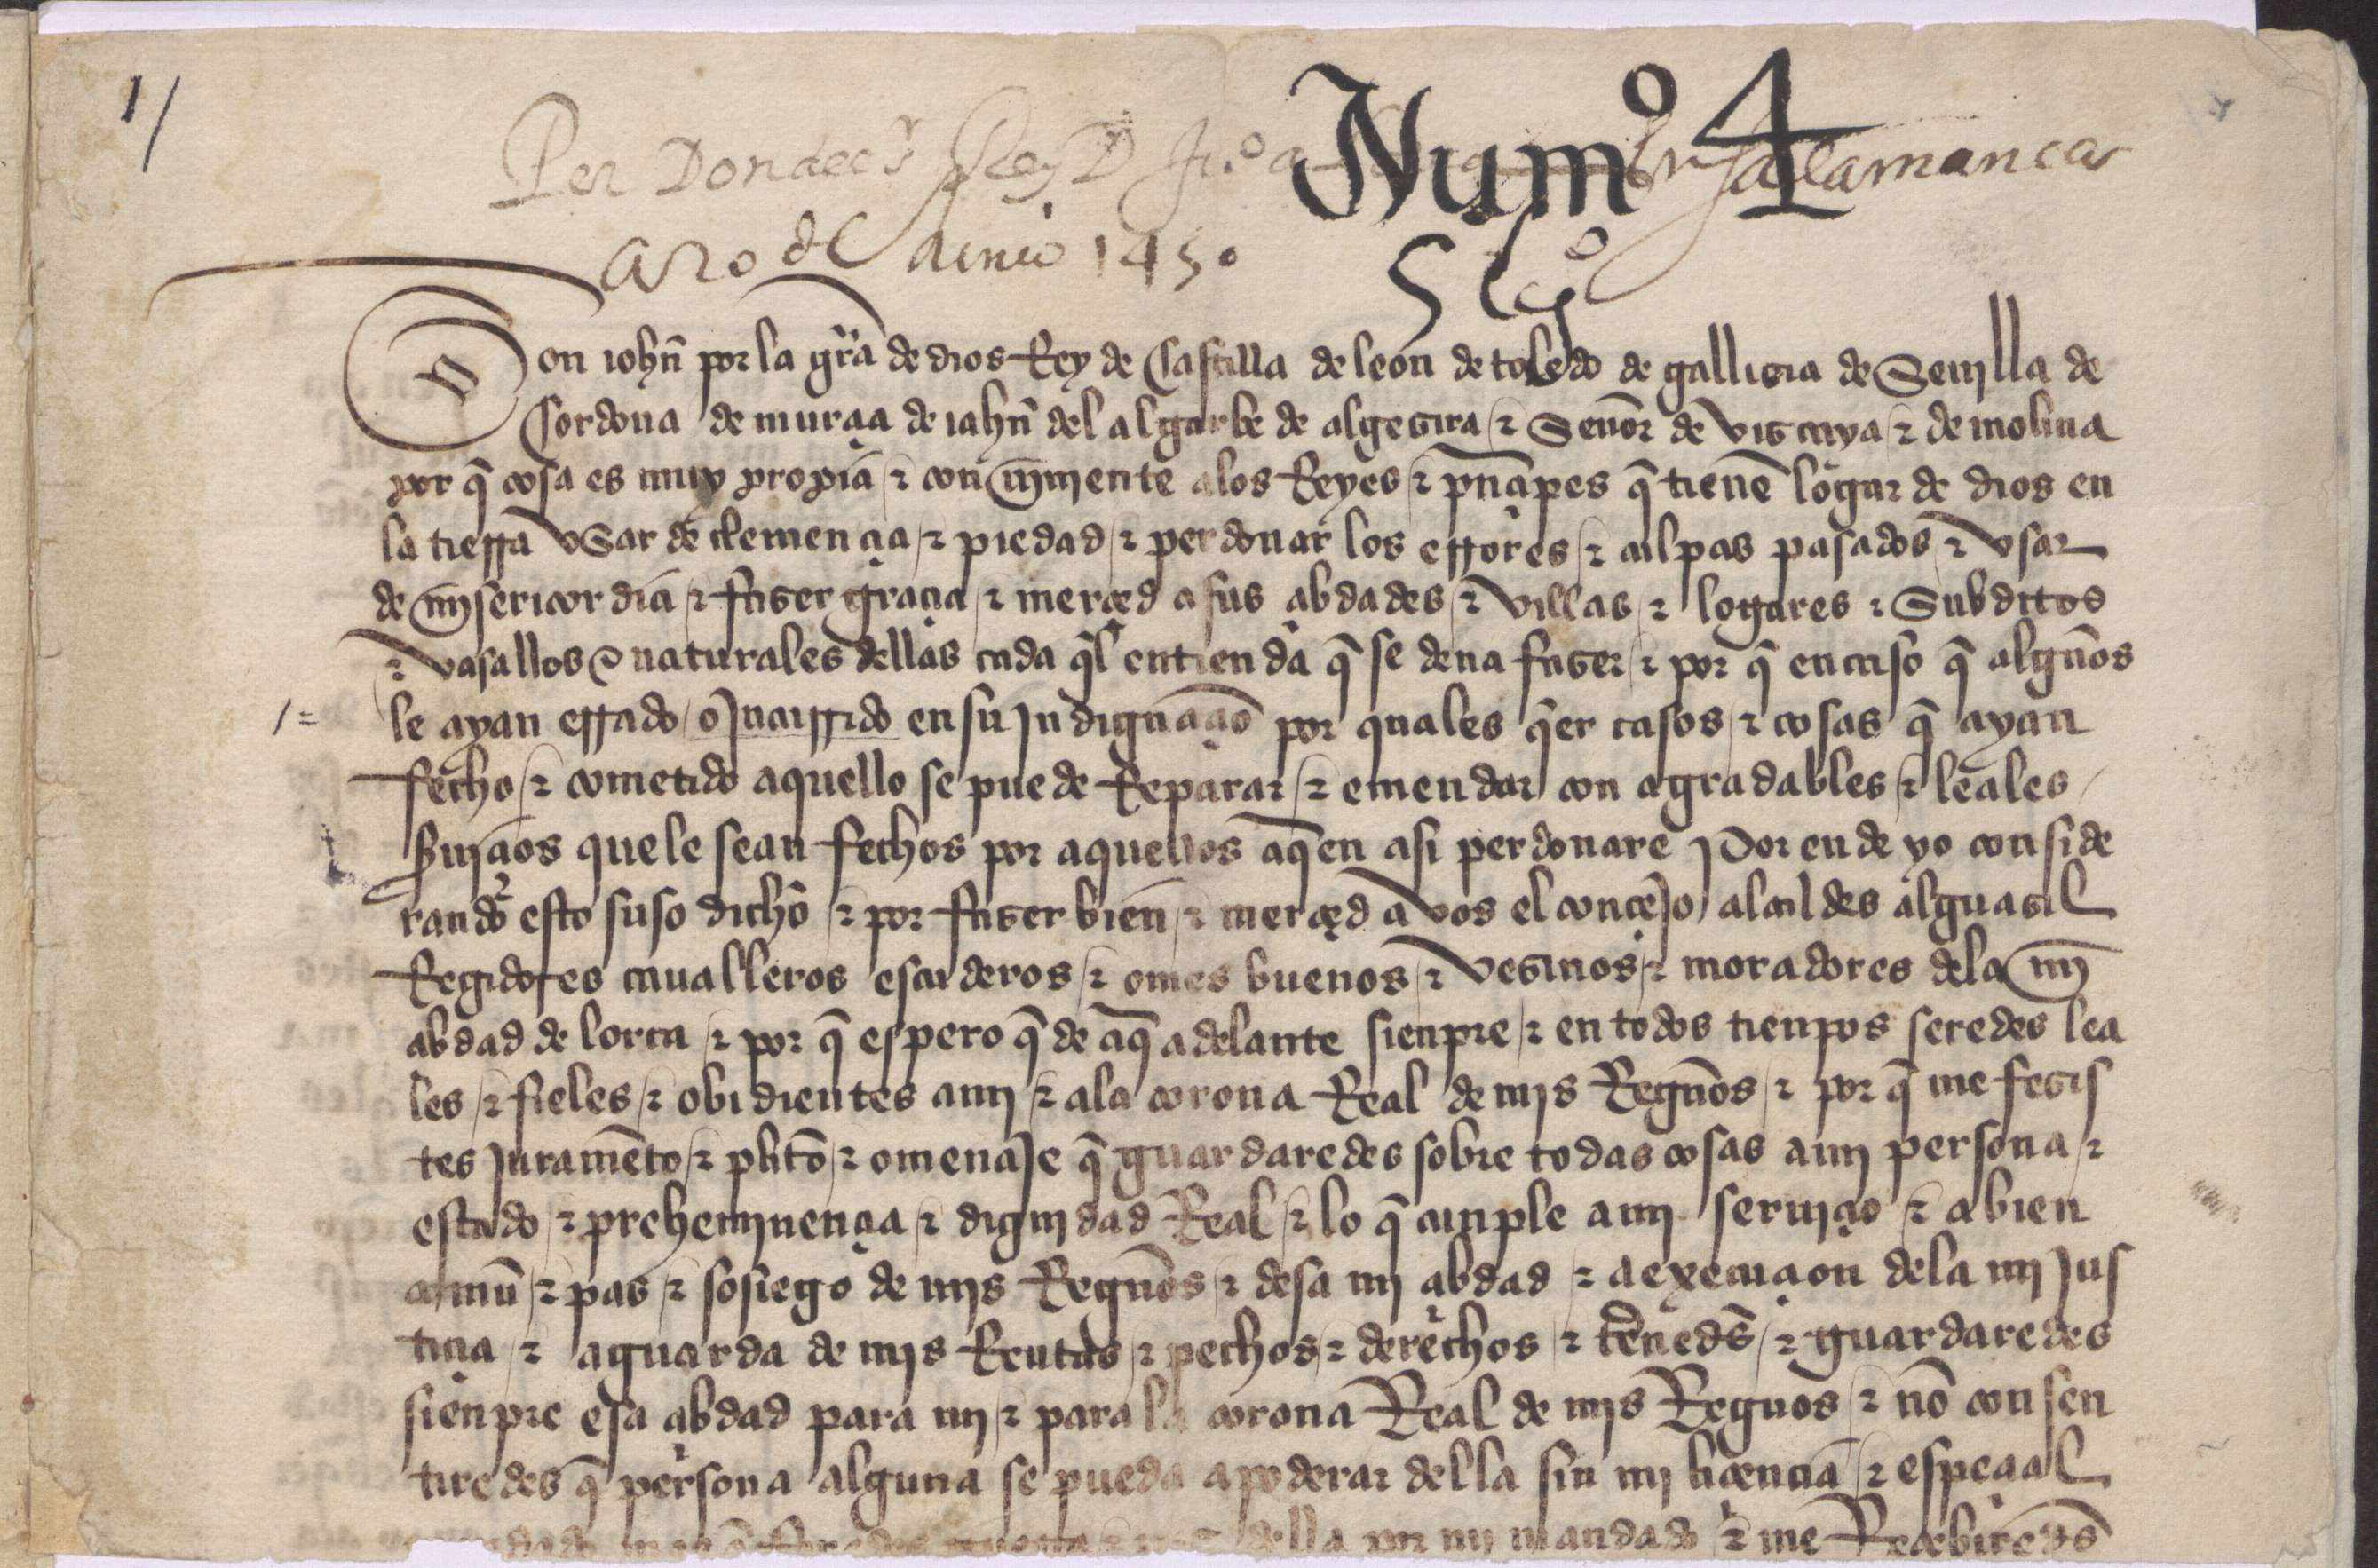 1/
Numº 4
Salamanca
año de Junio 1450
Don iohñ por la grã de dios Rey de Castilla de leon de toledo de gallizia de Seuilla de
Cordoua de murçia de iahñ del algarbe de algezira ⁊ Señor de vizcaya ⁊ de molina
por q̃ cosa es muy propia ⁊ conuinjente a los Reyes ⁊ prinçipes q̃ tienẽ logar de dios en
la tierra vsar de clemençia ⁊ piedad ⁊ perdonar los errores ⁊ culpas pasados ⁊ vsar
de mjsericordia ⁊ fazer graçia ⁊ merçed a sus çibdades ⁊ villas ⁊ logares ⁊ Subditos
⁊ vasallos ⁊ naturales dellas cada q̃l entienda q̃ se deua fazer ⁊ por q̃ en caso q̃ algũos
1= le ayan errado o Jncurrido en su Jndignaçiõ por quales q̃er casos ⁊ cosas q̃ ayan
fecho ⁊ cometido aquello se puede Reparar ⁊ emendar con agradables ⁊ leales
seruiçios que le sean fechos por aquellos a q̃en asi perdonare Por ende yo conside
rando esto suso dicho ⁊ por fazer bien ⁊ merçed a vos el conçejo alcaldes alguazil
Regidores caualleros escuderos ⁊ omes buenos ⁊ vezinos ⁊ moradores dela mj
çibdad de lorca ⁊ por q̃ espero q̃ de aq̃ adelante sienpre ⁊ en todos tienpos seredes lea
les ⁊ fieles ⁊ obidientes a mj ⁊ ala corona Real de mjs Regnõs ⁊ por q̃ me fezis
tes juramẽto ⁊ plito ⁊ omenaje q̃ guardaredes sobre todas cosas a mj persona ⁊
estado ⁊ prehemjnençia ⁊ dignjdad Real ⁊ lo q̃ cunple a mj seruiçio ⁊ a bien
comũ ⁊ paz ⁊ sosiego de mjs Regnõs ⁊ desa mj çibdad ⁊ a execuçion dela mj Jus
tiçia ⁊ a guarda de mjs Rentas ⁊ pechos ⁊ derechos ⁊ ternedes ⁊ guardaredes
sienpre esa çibdad para mj ⁊ para la corona Real de mjs Regnos ⁊ nõ consen
tiredes q̃ persona alguna se pueda apoderar della sin mj liçençia ⁊ espeçial
della por mj mandado ⁊ me Reçebiredes